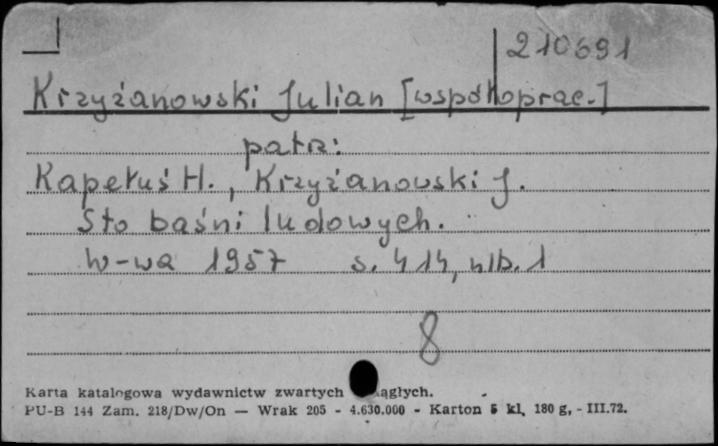 210691
Krzyżanowski Julian [współoprac.]
patrz:
Kapełuś H., Krzyżanowski J.
Sto baśni ludowych.
W-wa 1957 s. 414, nlb. 1
8
Karta katalogowa wydawnictw zwartych ągłych.
PU-B 144 Zam. 218/Dw/On — Wrak 205 - 4.630.000 - Karton 5 kl. 180 g. - III.72.